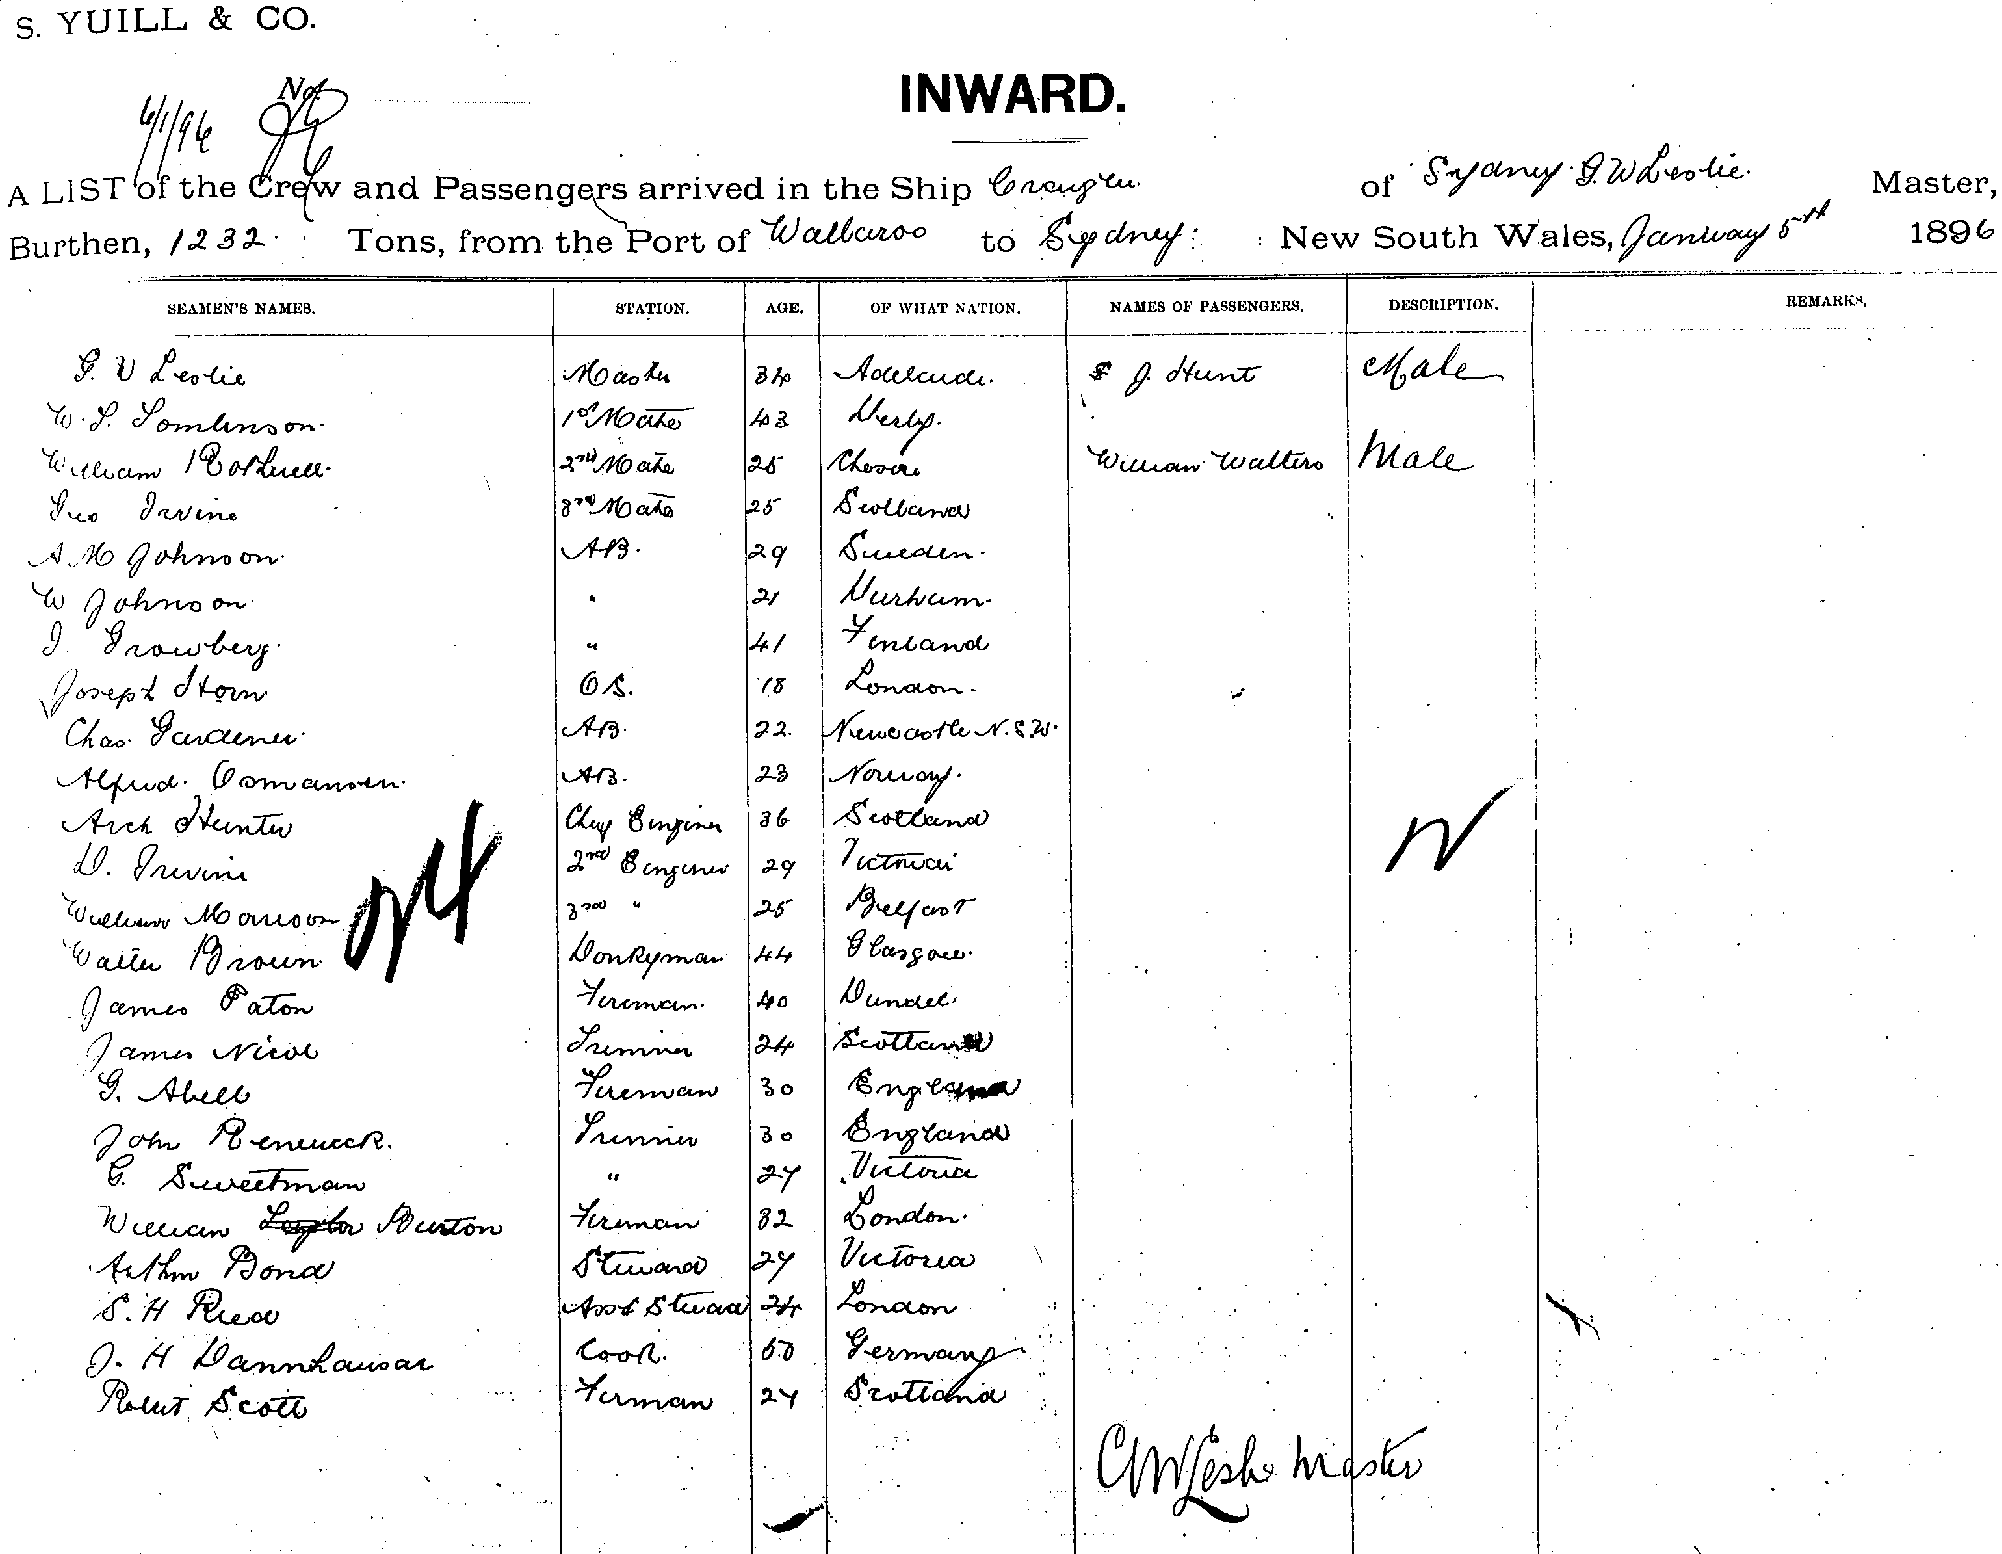 S. YUILL & CO.
No.
6/1/96
INWARD.
A LIST of the Crew and Passengers arrived in the Ship of Sydney G. W Leslie Master,
Burthen, 1232 Tons, from the Port of Wallaroo to Sydney New South Wales, January 5th 1896
SEAMEN'S NAMES. STATION. AGE. OF WHAT NATION. NAMES OF PASSENGERS. DESCRIPTION. REMARKS.
G. W Leslie Master 34 Adelaide. J. Hunt Male
W. S. Tomlinson 1st Mate 43 Derby.
William Rothwell 2nd Mate 25 William Walters Male
Geo Irvine 3rd Mate 25 Scotland
A M Johnson A.B. 29 Sweden.
W Johnson " 21 Durham.
J. Growberg. " 41 Finland
Joseph Horn O S. 18 London.
Chas. Gardener A.B. 22 Newcastle N.S.W.
Alfred. Osmansen. A.B. 23 Norway.
Arch Hunter Chief Enginer 36 Scotland
D. Irvine 2nd Enginer 29
William Morrison 3rd " 25 Belfast
Walter Brown Donkyman 44 Glasgow.
James Paton Fireman. 40 Dundee
James Nicol Trimmer 24 Scotland
G. Abell Fireman 30 England
John Renwick. Trimmer 30 England
G. Sweetman " 27 Victoria
William Burton Fireman 32 London.
Arthur Bond Steward 27 Victoria
S. H Reed Asst Steward 24 London
J. H Dannhauser Cook. 50 Germany
Robert Scott Firman 27 Scotland
G W Leslie Master